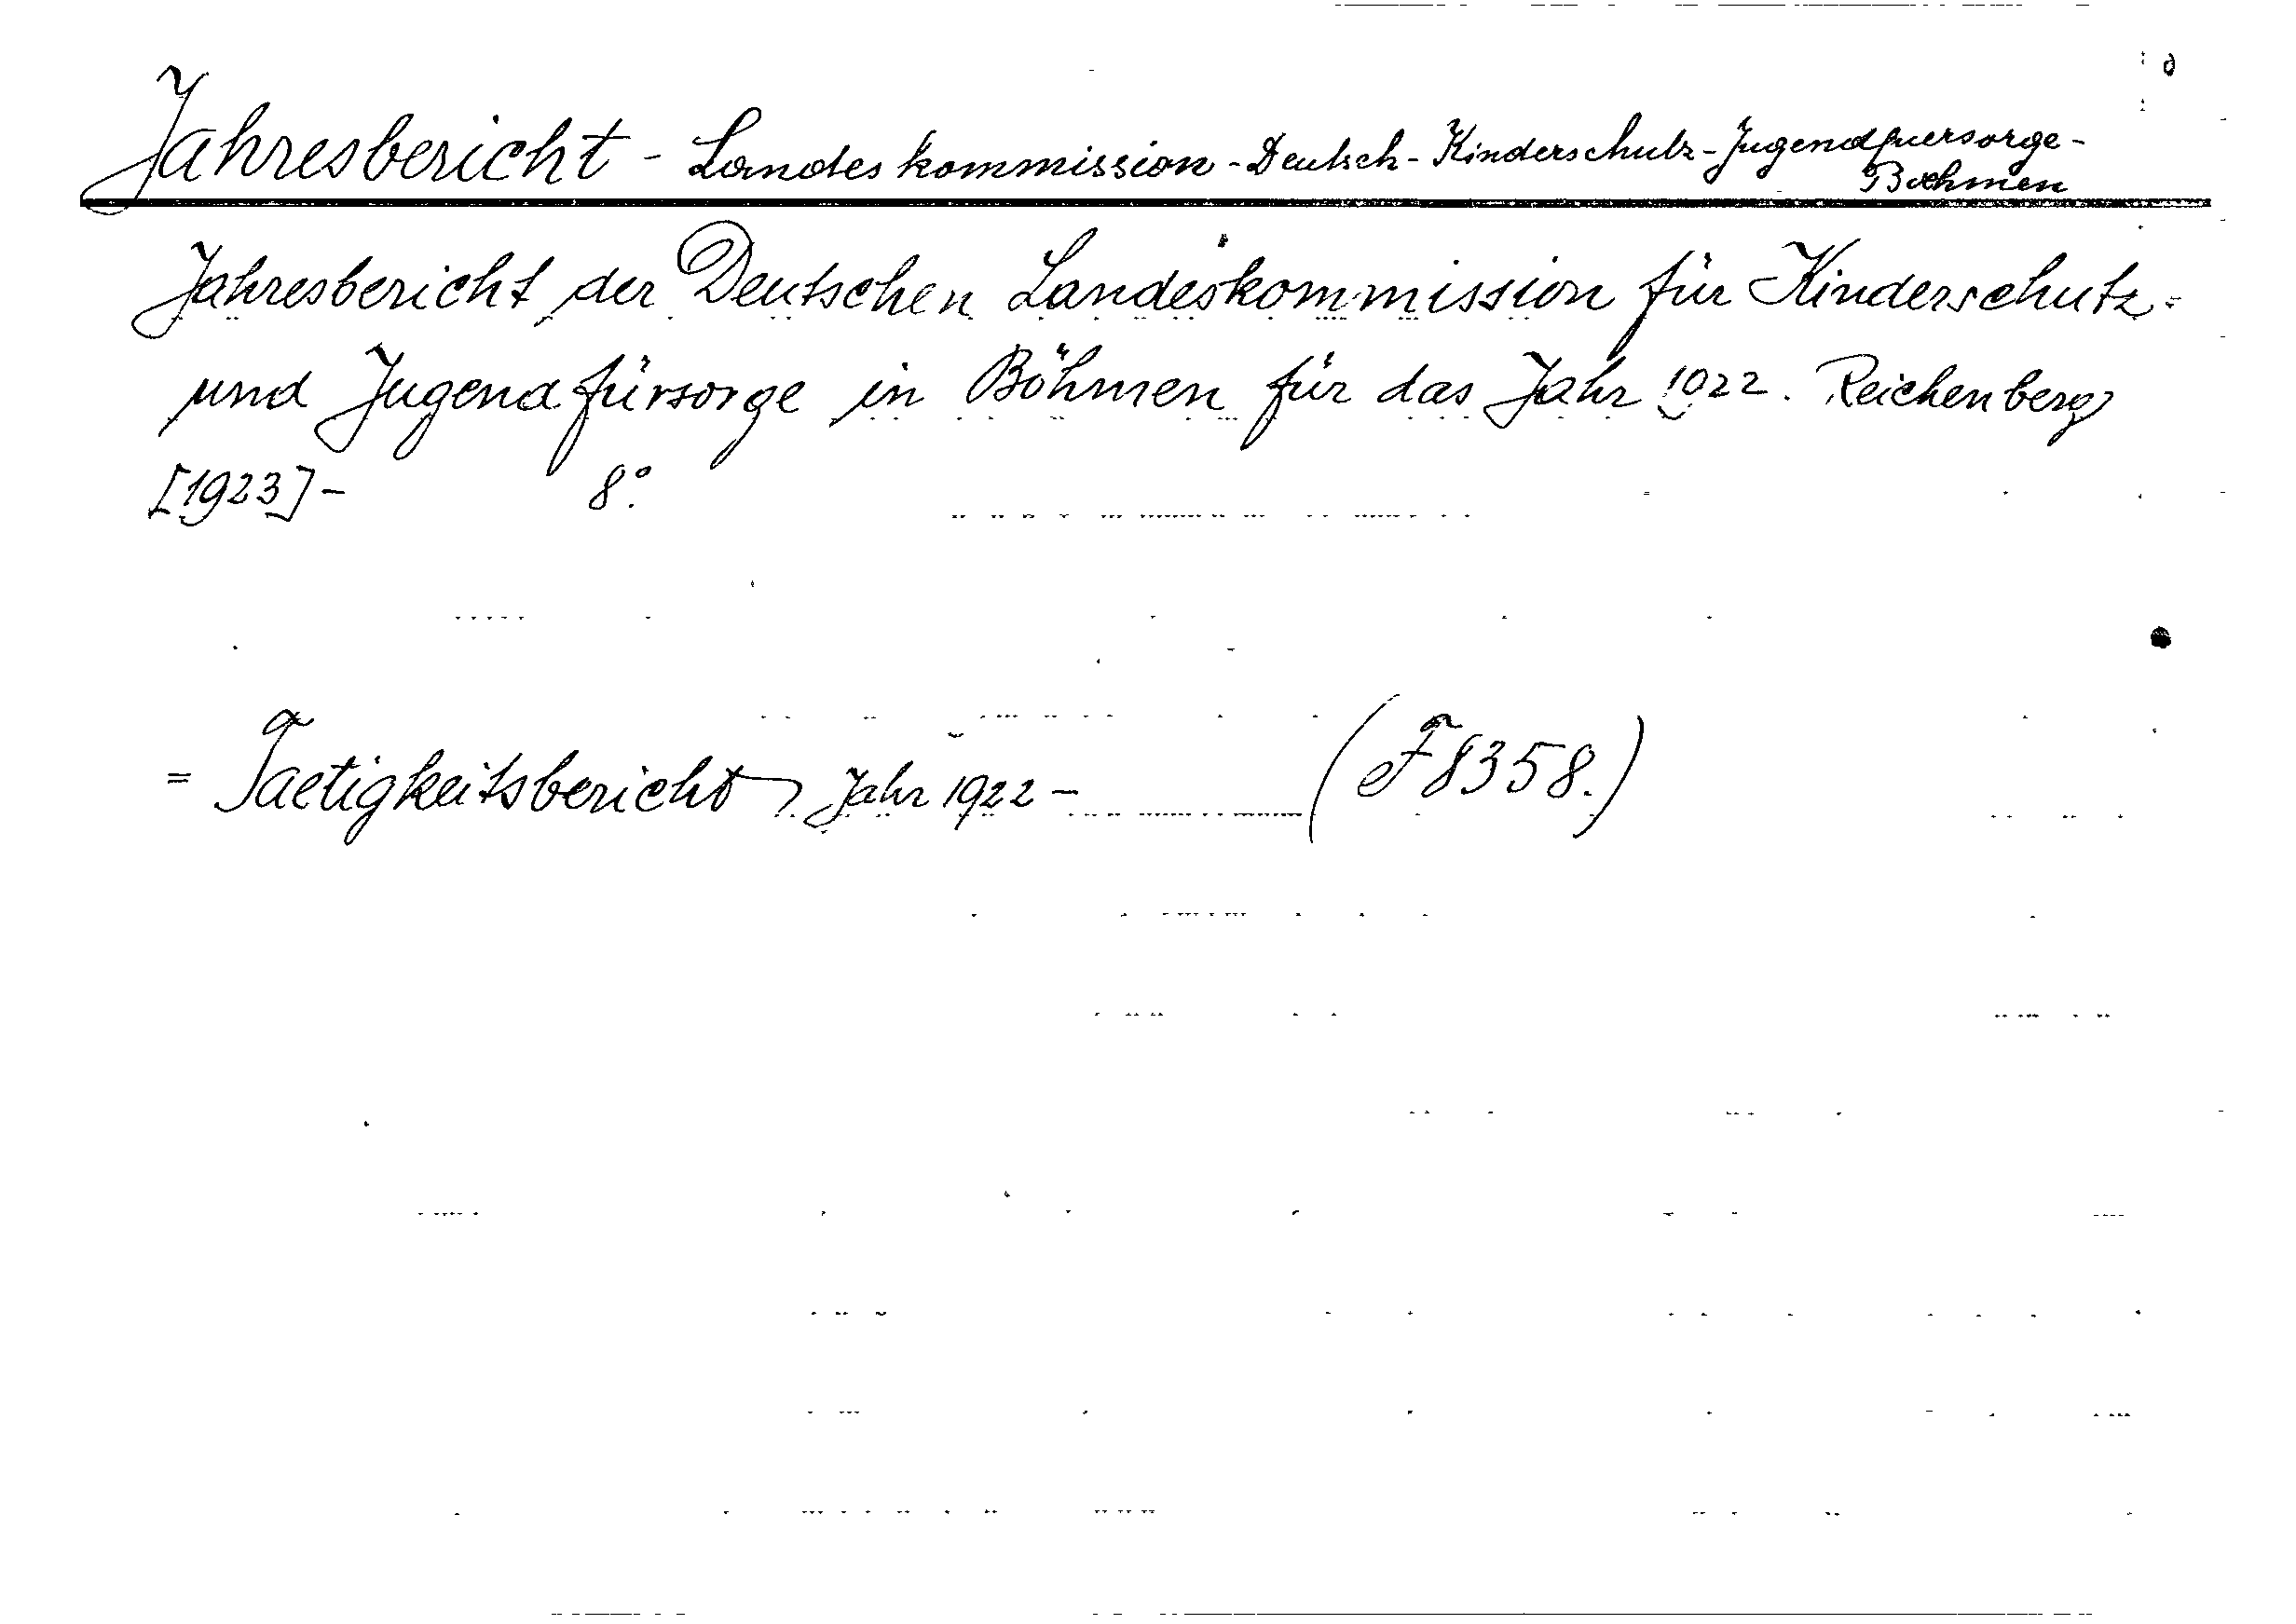 Jahresbericht - Landeskommission - Deutsch - Kinderschutz - Jugendfuersorge -
Boehmen
Jahresbericht der Deutschen Landeskommission für Kinderschutz-
und Jugendfürsorge in Böhmen für das Jahr 1922. Reichenberg
[1923] - 8°.
= Taetigkeitsbericht, Jahr 1922 - (F 8358.)